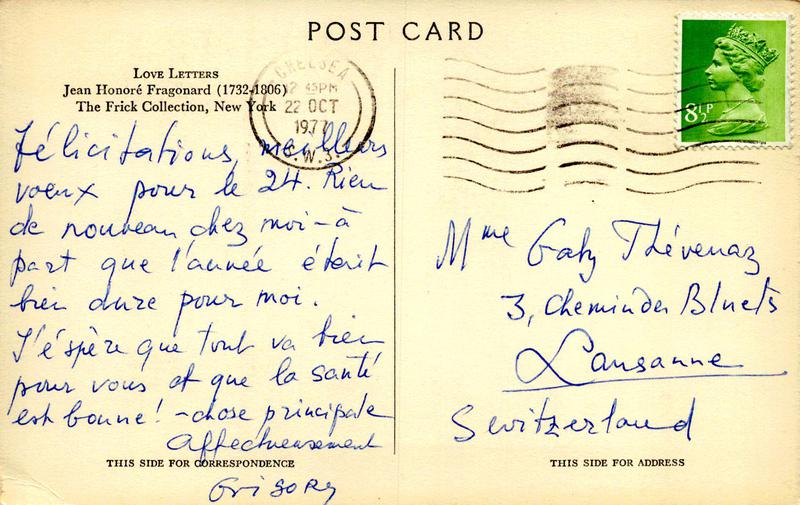 POST CARD
LOVE LETTERS
Jean Honoré Fragonard (1732-1806)
The Frick Collection, New York
CHELSEA
45PM
22 OCT
1977
S.W.3.
8½P
Félicitations, meilleurs
voeux pour le 24. Rien
de nouveau chez moi - à
part que l'année était
bien dure pour moi.
J'éspère que tout va bien
pour vous et que la santé
est bonne! - chose principale
Affectueusement
Grigory
THIS SIDE FOR CORRESPONDENCE
Mme Gaby Thévenaz
3, Chemin des Bluets
Lausanne
Switzerland
THIS SIDE FOR ADDRESS